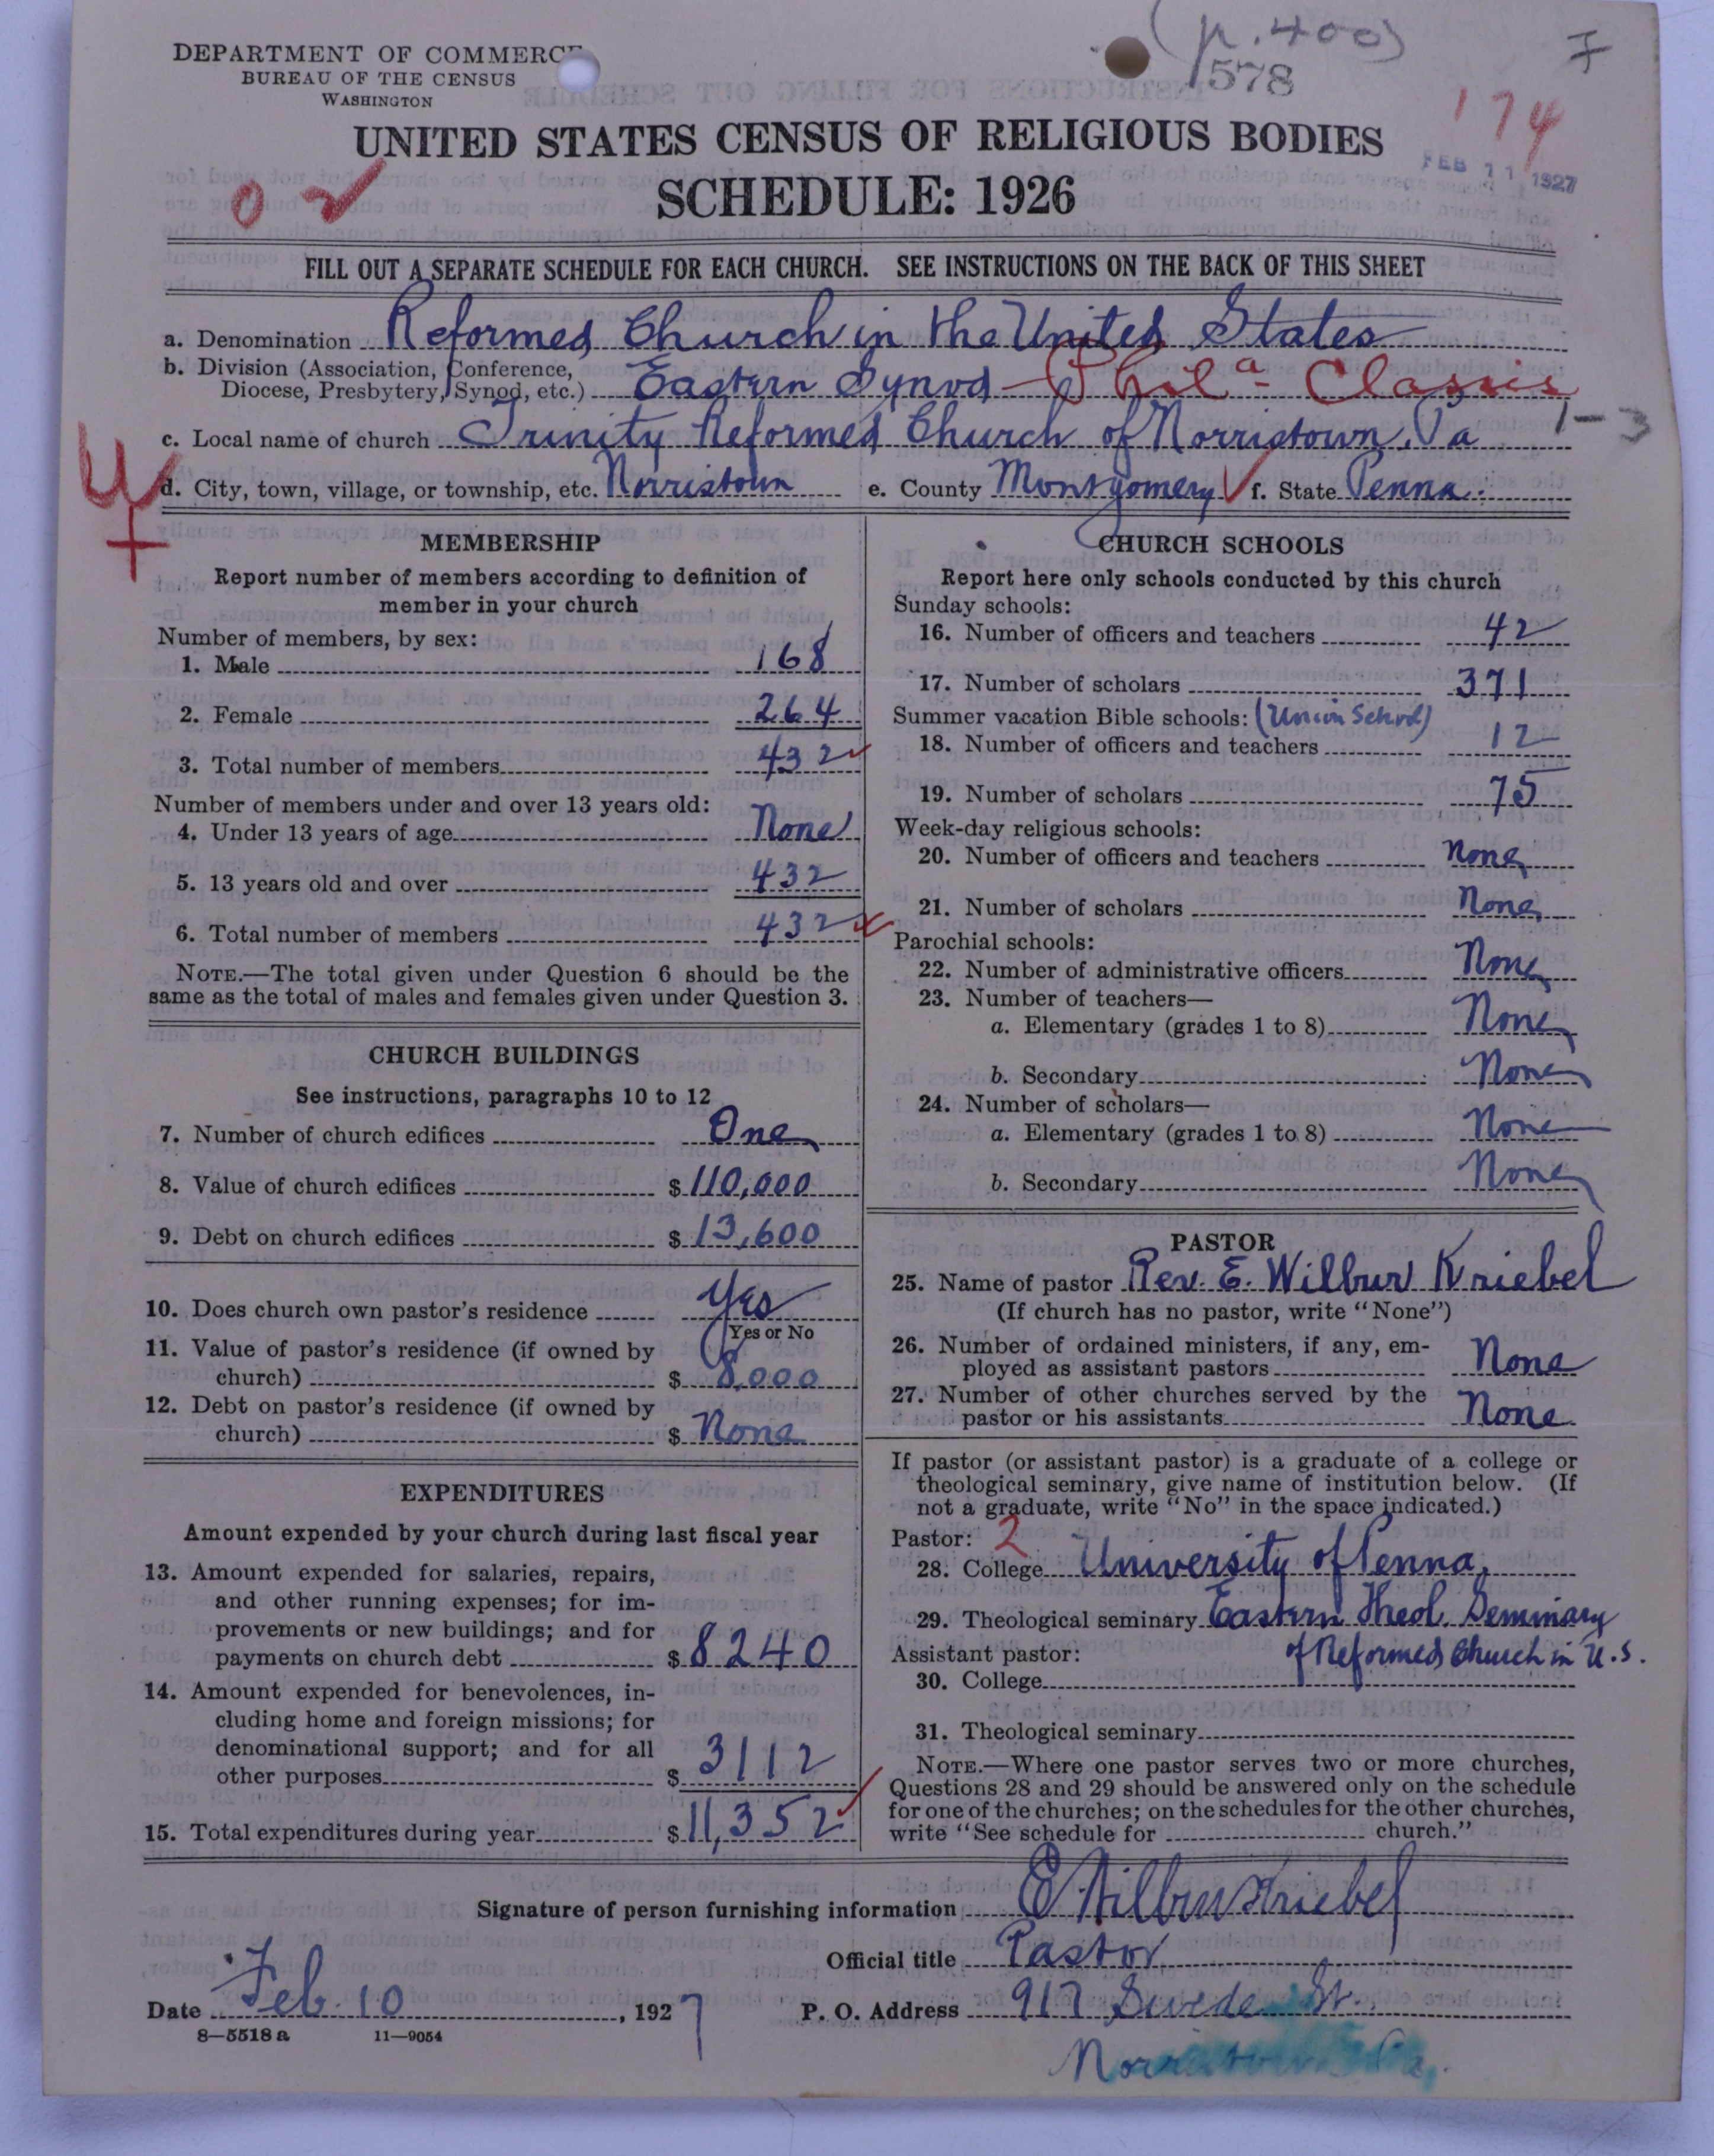 (p. 400)
7
578
DEPARTMENT OF COMMERCE
BUREAU OF THE CENSUS
WASHINGTON
174
UNITED STATES CENSUS OF RELIGIOUS BODIES
FEB 11 1927
SCHEDULE: 1926
FILL OUT A SEPARATE SCHEDULE FOR EACH CHURCH. SEE INSTRUCTIONS ON THE BACK OF THIS SHEET
a. Denomination Reformed Church in the United States
b. Division (Association, Conference,
Diocese, Presbytery, Synod, etc.) Eastern Synod - Phila - Classis
c. Local name of church Trinity Reformed Church of Norristown, Pa 1-3
d. City, town, village, or township, etc. Norristown e. County Montgomery f. State Penna.
MEMBERSHIP
Report number of members according to definition of
member in your church
Number of members, by sex:
1. Male 168
2. Female 264
3. Total number of members 432
Number of members under and over 13 years old:
4. Under 13 years of age None
5. 13 years old and over 432
6. Total number of members 432
NOTE.—The total given under Question 6 should be the
same as the total of males and females given under Question 3.
CHURCH BUILDINGS
See instructions, paragraphs 10 to 12
7. Number of church edifices One
8. Value of church edifices $ 110,000
9. Debt on church edifices $ 13,600
10. Does church own pastor's residence Yes
Yes or No
11. Value of pastor's residence (if owned by
church) $ 8,000
12. Debt on pastor's residence (if owned by
church) $ None
EXPENDITURES
Amount expended by your church during last fiscal year
13. Amount expended for salaries, repairs,
and other running expenses; for im-
provements or new buildings; and for
payments on church debt $ 8240
14. Amount expended for benevolences, in-
cluding home and foreign missions; for
denominational support; and for all
other purposes $ 3112
15. Total expenditures during year $ 11,352
CHURCH SCHOOLS
Report here only schools conducted by this church
Sunday schools:
16. Number of officers and teachers 42
17. Number of scholars 371
Summer vacation Bible schools: (Union School)
18. Number of officers and teachers 12
19. Number of scholars 75
Week-day religious schools:
20. Number of officers and teachers None
21. Number of scholars None
Parochial schools:
22. Number of administrative officers None
23. Number of teachers—
a. Elementary (grades 1 to 8) None
b. Secondary None
24. Number of scholars—
a. Elementary (grades 1 to 8) None
b. Secondary None
PASTOR
25. Name of pastor Rev. E. Wilbur Kriebel
(If church has no pastor, write "None")
26. Number of ordained ministers, if any, em-
ployed as assistant pastors None
27. Number of other churches served by the
pastor or his assistants None
If pastor (or assistant pastor) is a graduate of a college or
theological seminary, give name of institution below. (If
not a graduate, write "No" in the space indicated.)
Pastor: 2
28. College University of Penna,
29. Theological seminary Eastern Theol. Seminary
of Reformed Church in U.S.
Assistant pastor:
30. College
31. Theological seminary
NOTE.—Where one pastor serves two or more churches,
Questions 28 and 29 should be answered only on the schedule
for one of the churches; on the schedules for the other churches,
write "See schedule for church."
Signature of person furnishing information E Wilbur Kriebel
Official title Pastor
Date Feb. 10, 1927 P. O. Address 917 Swede St.
8—5518 a 11—9054
Norristown Pa.